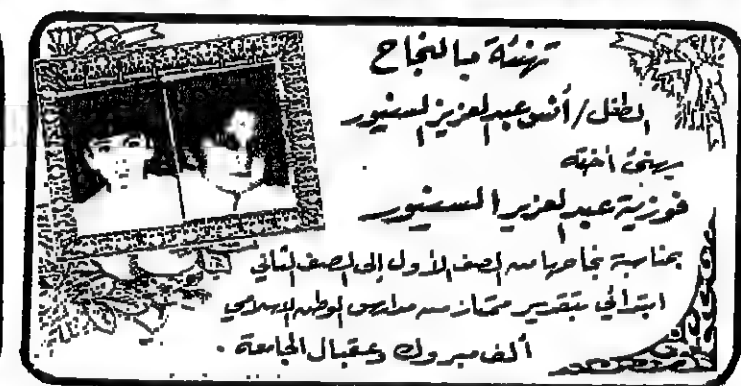 تهنئة بالنجاح
الطفل / أنس عبدالعزيز السنيور
يهنئ أخته
فوزية عبدالعزيز السنيور
بمناسبة نجاحها من الصف الأول إلى الصف الثاني
ابتدائي بتقدير ممتاز من مدارس الوطن الإسلامي
ألف مبروك وعقبال الجامعة .